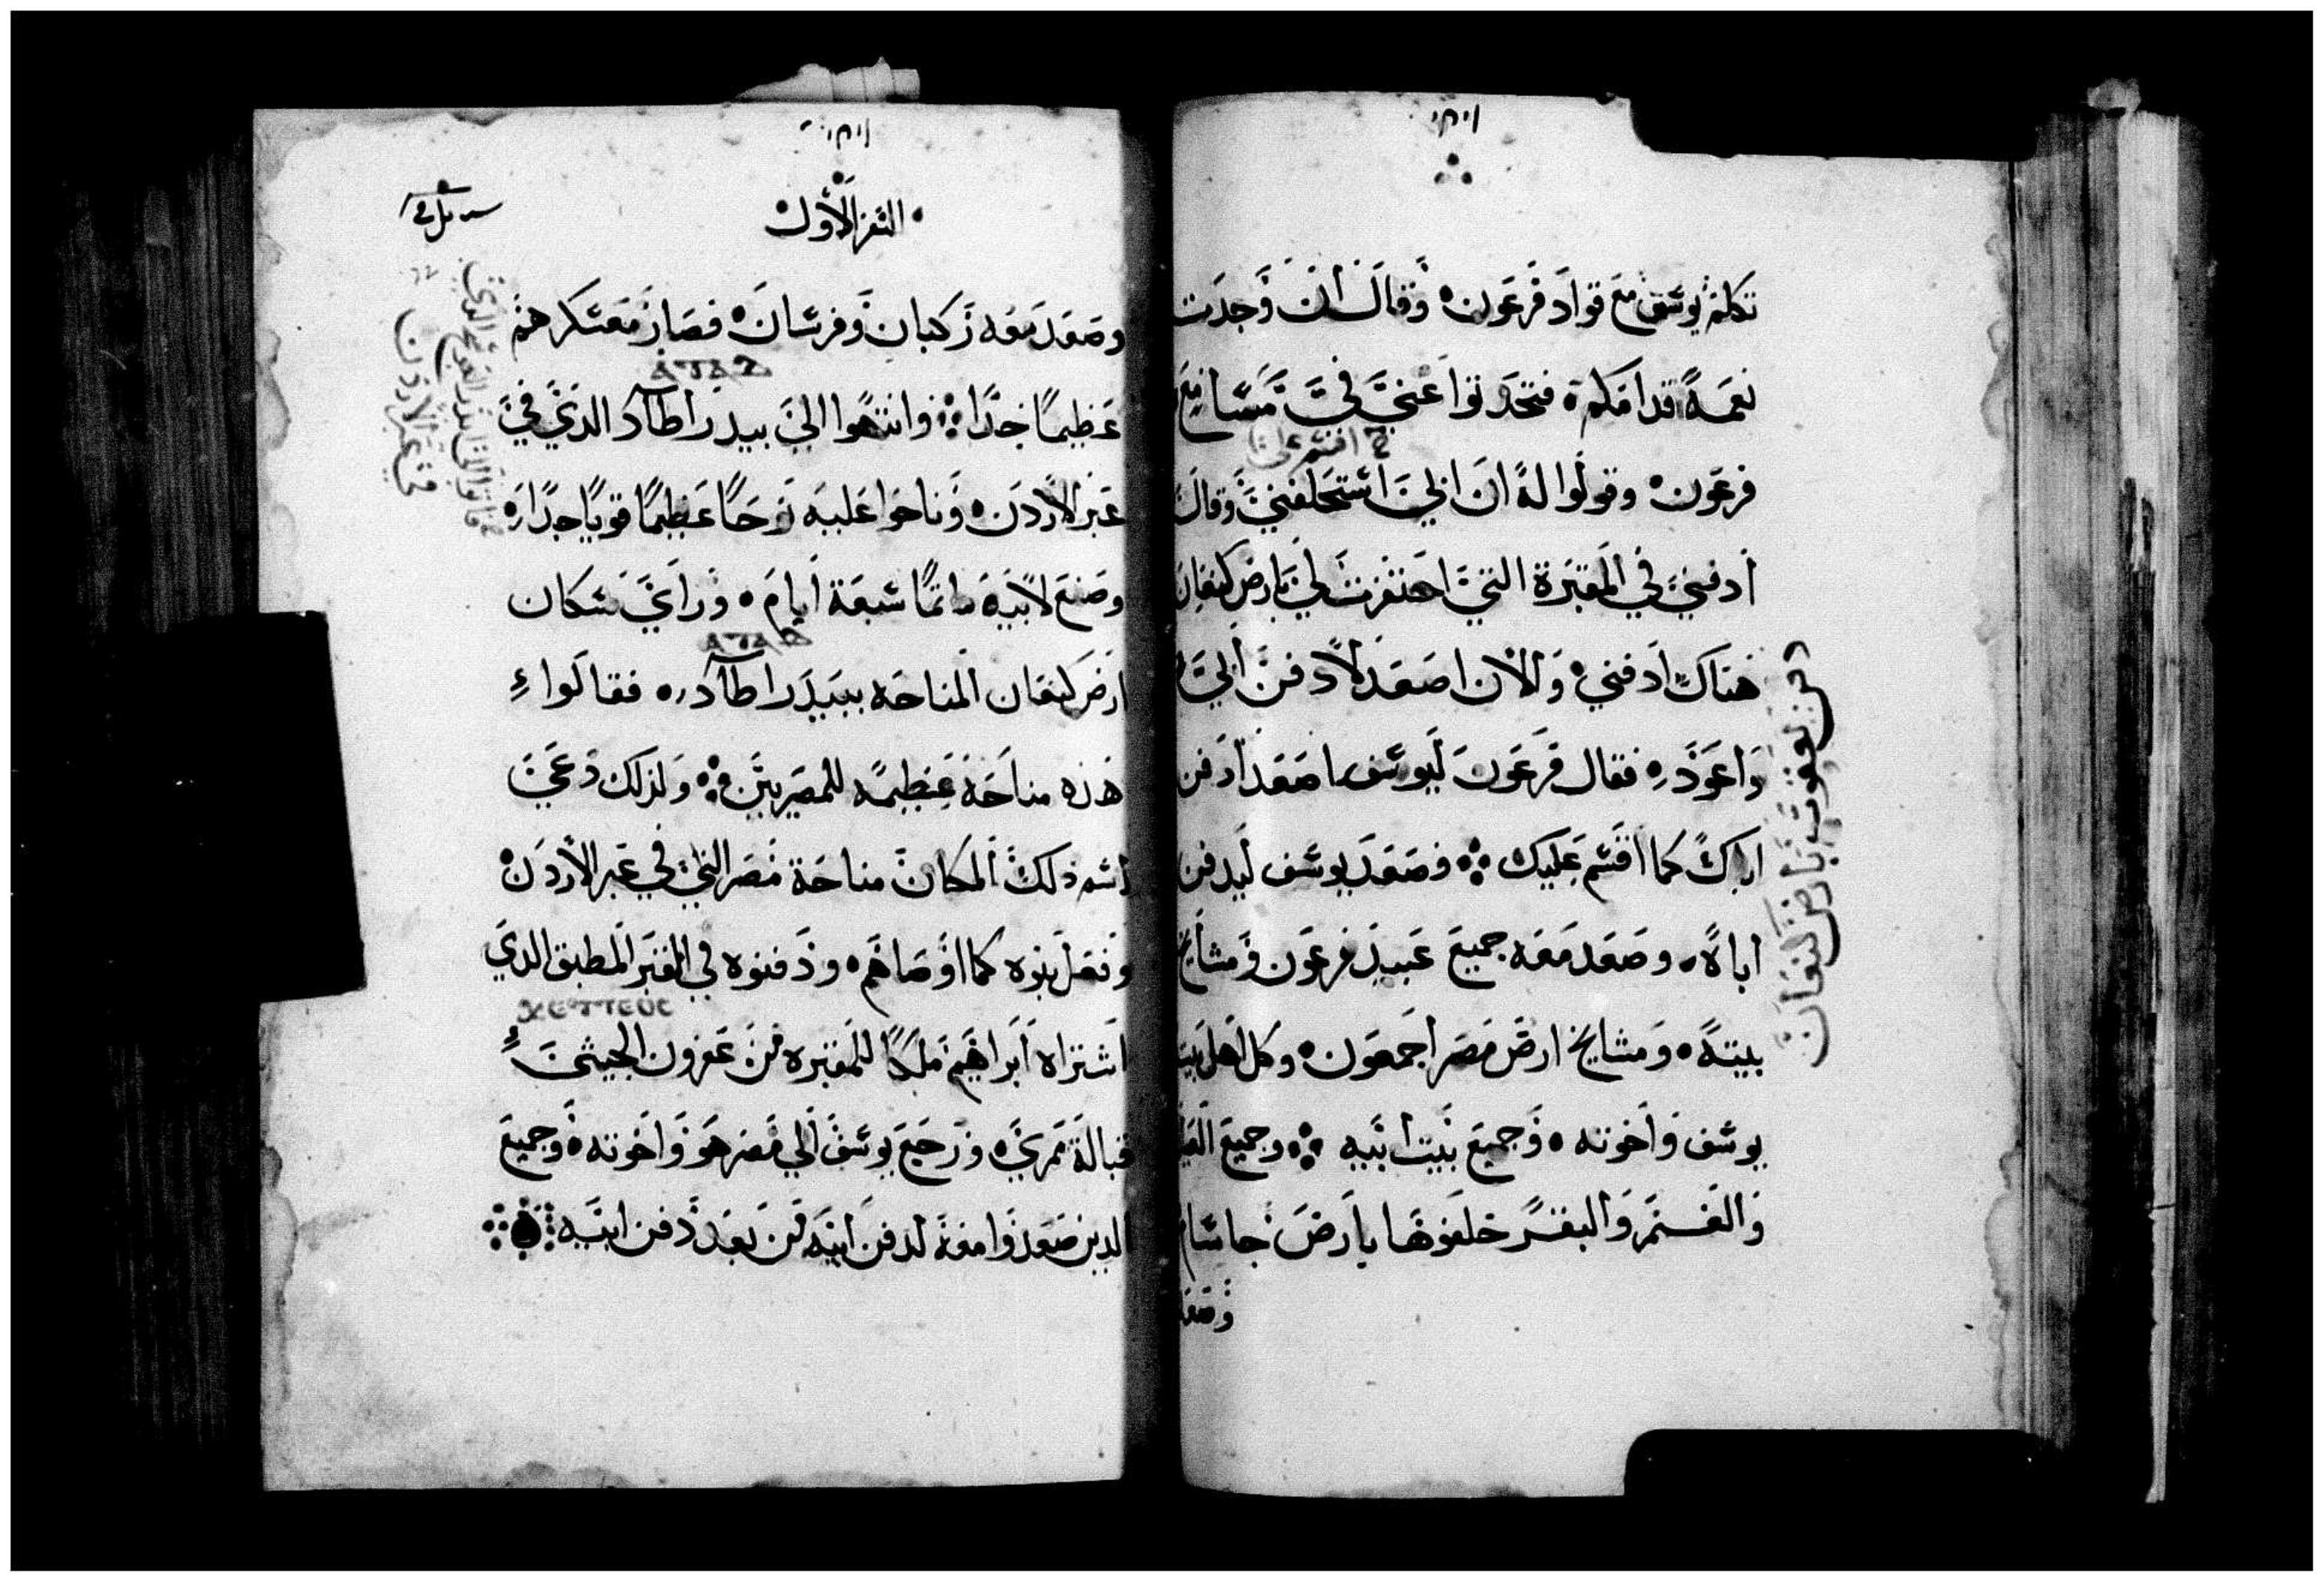 تكلم يوسف مع قواد فرعون وقال ان وجدت
نعمة قدامكم فتحدثوا عني في مسامع
اقسم علي
فرعون وقولوا له ان ابي استحلفني وقال
ادفني في المقبرة التي احتفرت لي بارض كنعان
هناك ادفني والان اصعد لادفن ابي
واعود فقال فرعون ليوسف اصعد ادفن
اباك كما اقسم عليك وصعد يوسف ليدفن
اباه وصعد معه جميع عبيد فرعون ومشايخ
بيته ومشايخ ارض مصر اجمعون وكل اهل بيت
يوسف واخوته وجميع بيت ابيه وجميع
والغنم والبقر خلفوها بارض جاسام
وصعد
دفن يعقوب بارض كنعان
السفر الاول
وصعد معه ركبان وفرسان فصار معسكرهم
ⲁⲧⲁⲇ
عظيما جدا وانتهوا الي بيدر اطاد الذي في
عبر الاردن وناحوا عليه نوحا عظيما قويا جدا
وصنع لابيه ماتما سبعة ايام وراي سكان
ⲁⲧⲁⲇ
ارض كنعان المناحه ببيدر اطاد فقالوا
هذه مناحة عظيمه للمصريين ولذلك دعي
اسم ذلك المكان مناحة مصر التي في عبر الاردن
وفعل بنوه كما اوصاهم ودفنوه في القبر المطبق الذي
ⲭⲉⲧⲧⲉⲟⲥ
اشتراه ابراهيم ملكا للمقبره من عفرون الحيثي
قبالة ممري ورجع يوسف الي مصر هو واخوته وجميع
الدين صعدوا معه لدفن ابيه من بعد دفن ابيه
في عبر الاردن